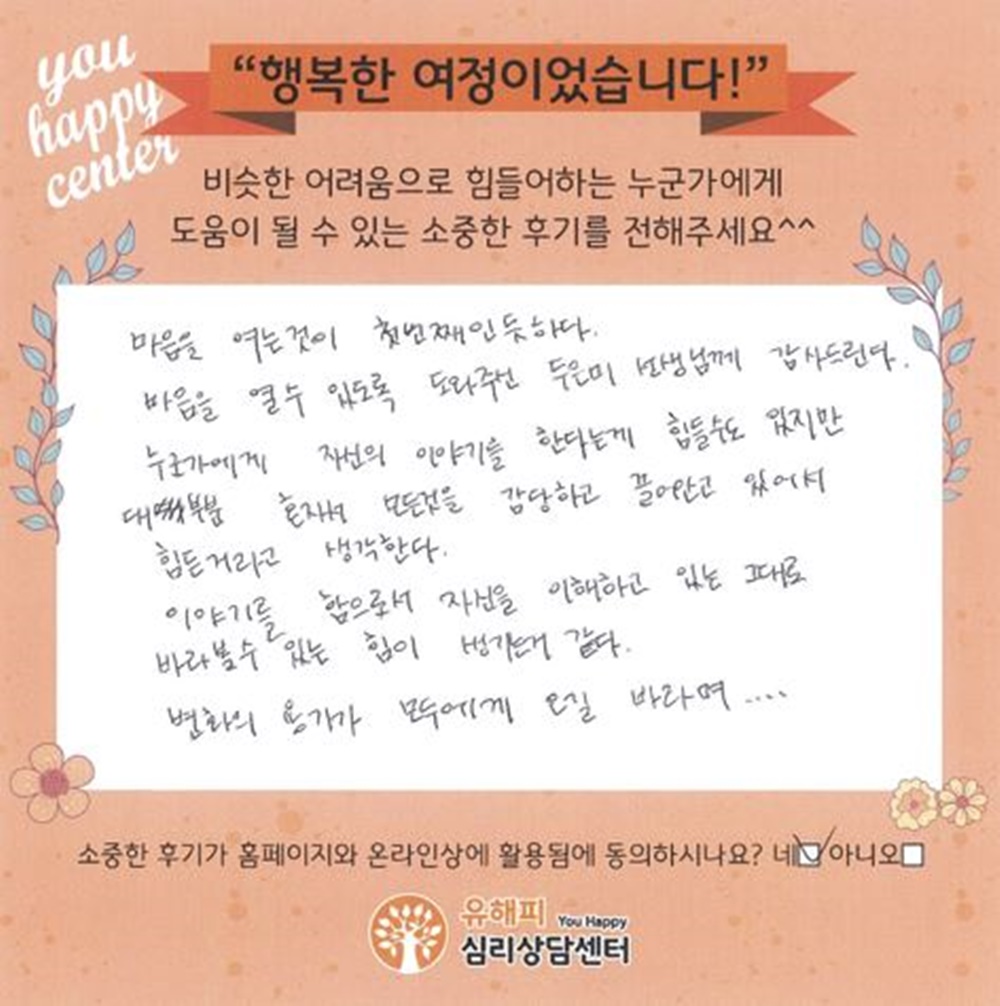 you
happy
center
“행복한 여정이었습니다!”
비슷한 어려움으로 힘들어하는 누군가에게
도움이 될 수 있는 소중한 후기를 전해주세요^^
마음을 여는것이 첫번째인 듯하다.
마음을 열수 있도록 도와주신 두은미 선생님께 감사드린다.
누군가에게 자신의 이야기를 한다는게 힘들수도 있지만
대부분 혼자서 모든것을 감당하고 끌어안고 있어서
힘든거라고 생각한다.
이야기를 함으로서 자신을 이해하고 있는 그대로
바라볼수 있는 힘이 생기는거 같다.
변화의 용기가 모두에게 오길 바라며....
소중한 후기가 홈페이지와 온라인상에 활용됨에 동의하시나요? 네 아니오
유해피 You Happy
심리상담센터